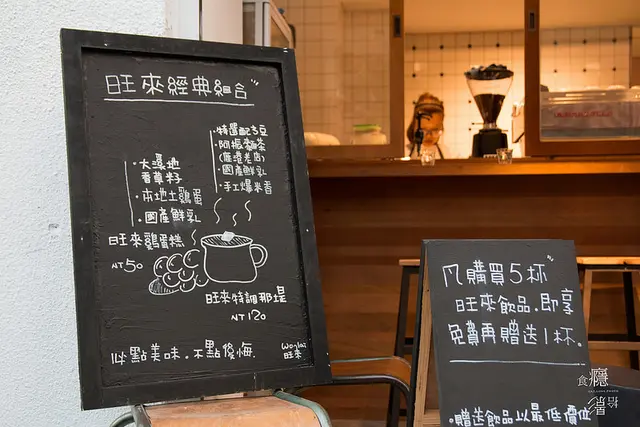 旺來經典組合
特調配方豆
阿振肉茶
(鹿港老店)
·國產鮮乳
·手工爆米香
·大溪地
香草籽
·本地土雞蛋
·國產鮮乳
旺來雞蛋糕
NT 50
旺來特調那堤
NT 120
必點美味.不點後悔.
Wonglai
旺來
凡購買5杯
旺來飲品.即享
免費再贈送1杯.
·贈送飲品以最低價位
食癮
拾影